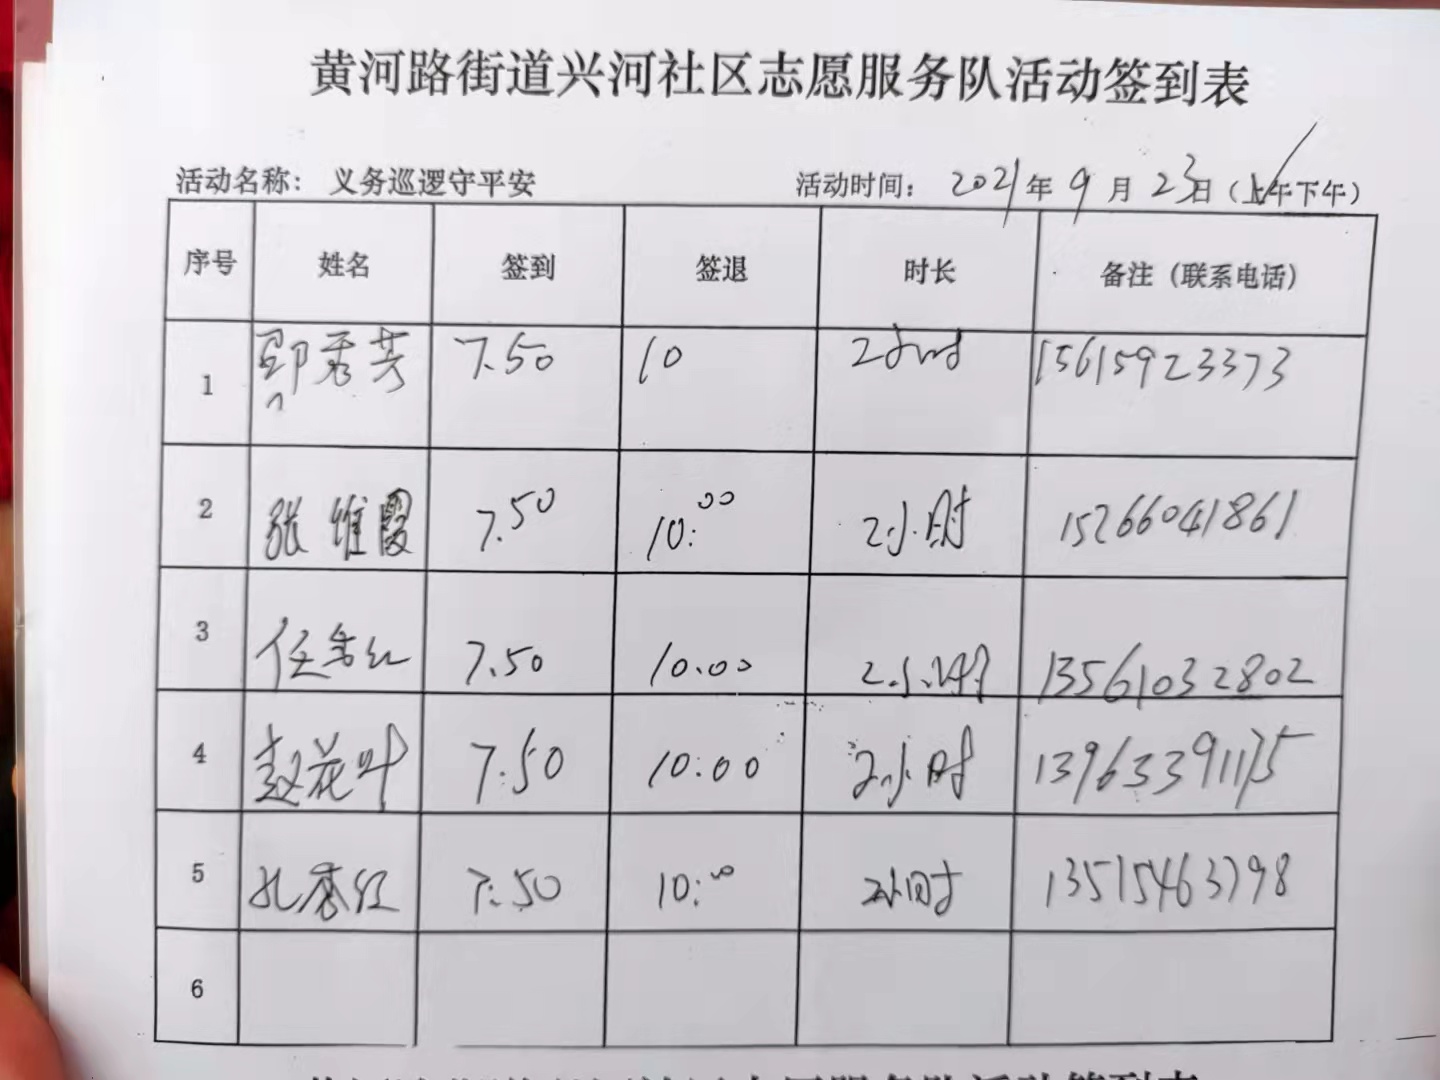 黄河路街道兴河社区志愿服务队活动签到表
活动名称： 义务巡逻守平安 活动时间： 2021年9月23日（上午下午）
序号 姓名 签到 签退 时长 备注（联系电话）
1 秀芳 7.50 10 2小时 15615923373
2 张维霞 7.50 10:00 2小时 15266041861
3 任红 7.50 10.00 2小时 13561032802
4 赵花叶 7:50 10:00 2小时 13963391175
5 孔香红 7:50 10:00 2小时 13515463798
6